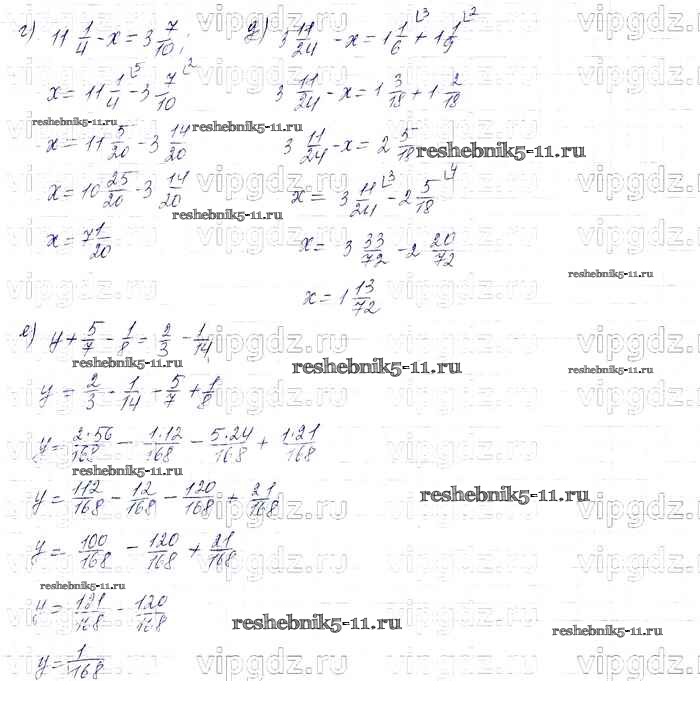 г) 11 1/4 - x = 3 7/10;
x = 11 1/4 - 3 7/10
x = 11 5/20 - 3 14/20
x = 10 25/20 - 3 14/20
x = 7 11/20
д) 3 11/24 - x = 1 1/6 + 1 1/9
3 11/24 - x = 1 3/18 + 1 2/18
3 11/24 - x = 2 5/18
x = 3 11/24 - 2 5/18
x = 3 33/72 - 2 20/72
x = 1 13/72
е) y + 5/7 - 1/8 = 2/3 - 1/14
y = 2/3 - 1/14 - 5/7 + 1/8
y = 2·56/168 - 1·12/168 - 5·24/168 + 1·21/168
y = 112/168 - 12/168 - 120/168 + 21/168
y = 100/168 - 120/168 + 21/168
y = 121/168 - 120/168
y = 1/168
reshebnik5-11.ru
vipgdz.ru